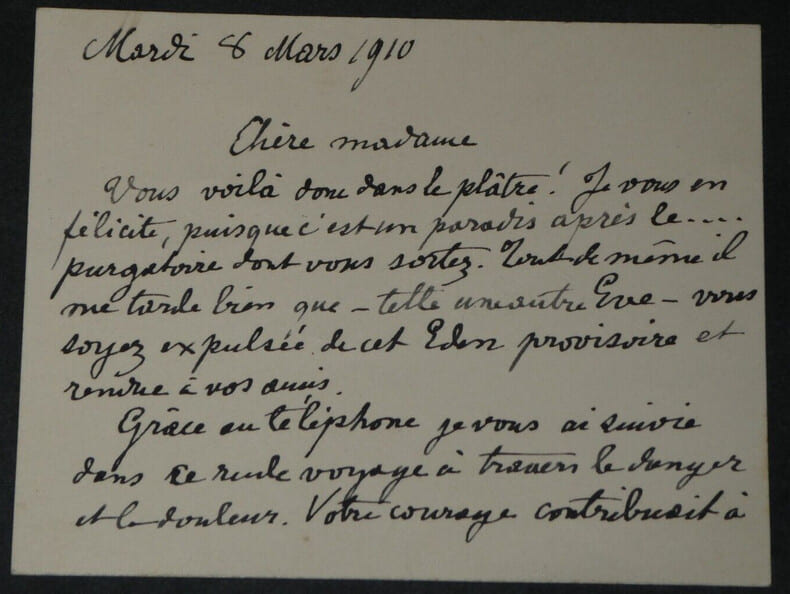 Mardi 8 Mars 1910
Chère madame
Vous voilà donc dans le plâtre! Je vous en
félicite, puisque c'est un paradis après le....
purgatoire dont vous sortez. Tout de même il
me tarde bien que - telle une autre Eve - vous
soyez expulsée de cet Eden provisoire et
rendue à vos amis.
Grâce au téléphone je vous ai suivie
dans ce rude voyage à travers le danger
et la douleur. Votre courage contribuait à